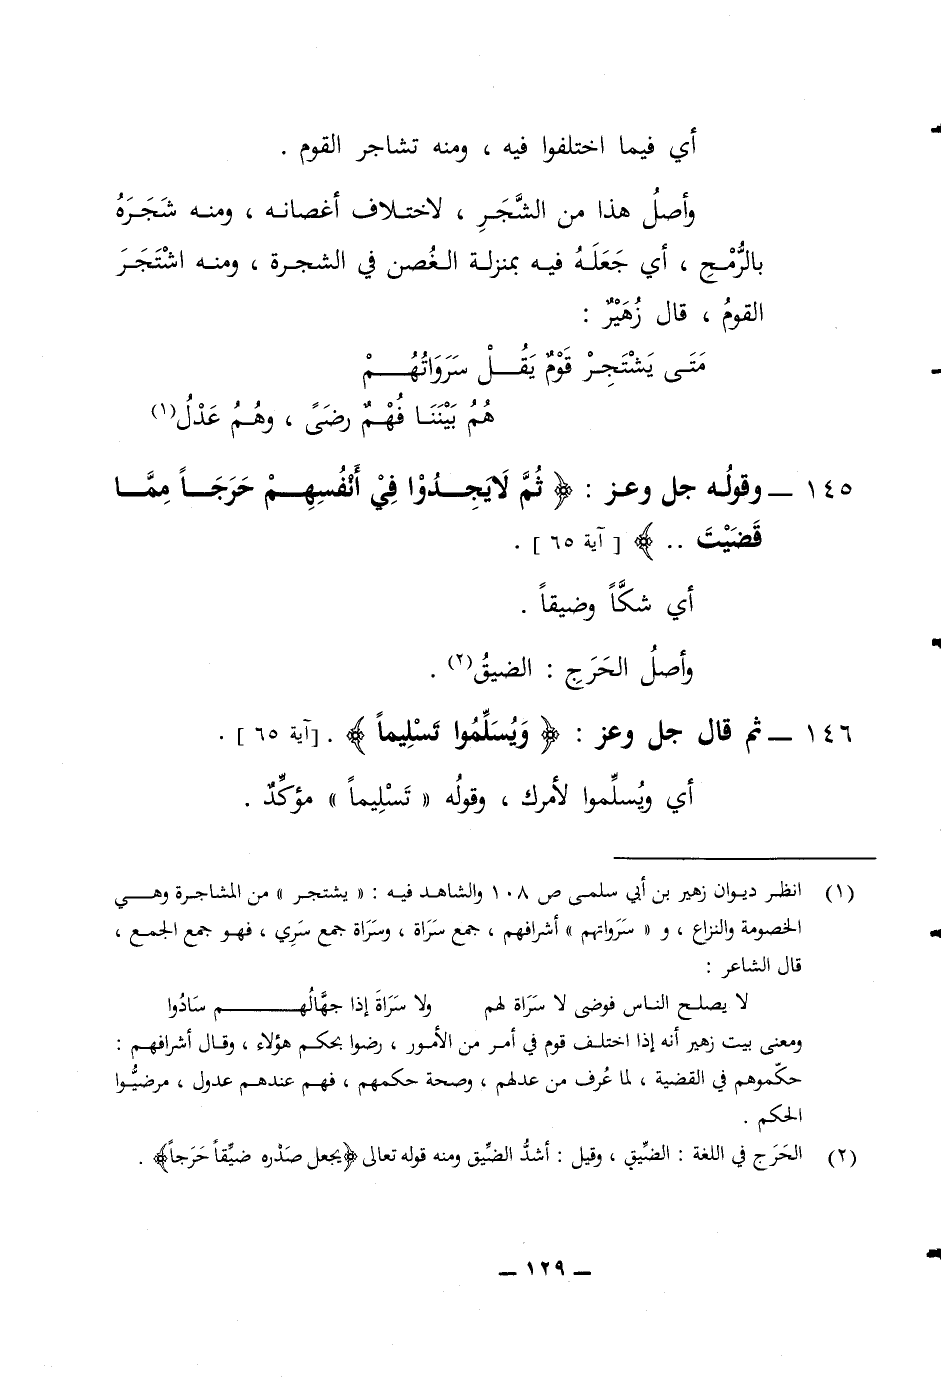 أي فيما اختلفوا فيه ، ومنه تشاجر القوم .
وأصلُ هذا من الشَّجَرِ ، لاختلاف أغصانه ، ومنه شَجَرَهُ
بالرُّمْحِ ، أي جَعَلَهُ فيه بمنزلة الغُصن في الشجرة ، ومنه اشْتَجَرَ
القومُ ، قال زُهَيْرٌ :
مَتَى يَشْتَجِرْ قَوْمٌ يَقُلْ سَرَوَاتُهُمْ
هُمُ بَيْنَنَا فُهْمٌ رضَىً ، وهُمُ عَدْلُ(١)
١٤٥ ــ وقولُه جل وعز : ﴿ ثُمَّ لَايَجِدُوْا فِيْ أَنْفُسِهِمْ حَرَجَاً مِمَّا
قَضَيْتَ .. ﴾ [ آية ٦٥ ] .
أي شكَّاً وضيقاً .
وأصلُ الحَرَجِ : الضيقُ(٢) .
١٤٦ ــ ثم قال جل وعز : ﴿ وَيُسَلِّمُوا تَسْلِيماً ﴾ . [آية ٦٥ ] .
أي ويُسلِّموا لأمرك ، وقولُه « تَسْلِيماً » مؤكِّدٌ .
(١) انظر ديوان زهير بن أبي سلمى ص ١٠٨ والشاهد فيه : « يشتجر » من المشاجرة وهي
الخصومة والنزاع ، و « سَرَواتهم » أشرافهم ، جمع سَرَاة ، وسَرَاة جمع سَرِي ، فهو جمع الجمع ،
قال الشاعر :
لا يصلح الناس فوضى لا سَرَاة لهم ولا سَرَاةَ إذا جهَّالُهم سَادُوا
ومعنى بيت زهير أنه إذا اختلف قوم في أمر من الأمور ، رضوا بحكم هؤلاء ، وقال أشرافهم :
حكّموهم في القضية ، لما عُرف من عدلهم ، وصحة حكمهم ، فهم عندهم عدول ، مرضيُّوا
الحكم .
(٢) الحَرَج في اللغة : الضِّيق ، وقيل : أشدُّ الضِّيق ومنه قوله تعالى ﴿يجعل صَدْره ضيِّقاً حَرَجاً﴾ .
ــ ١٢٩ ــ